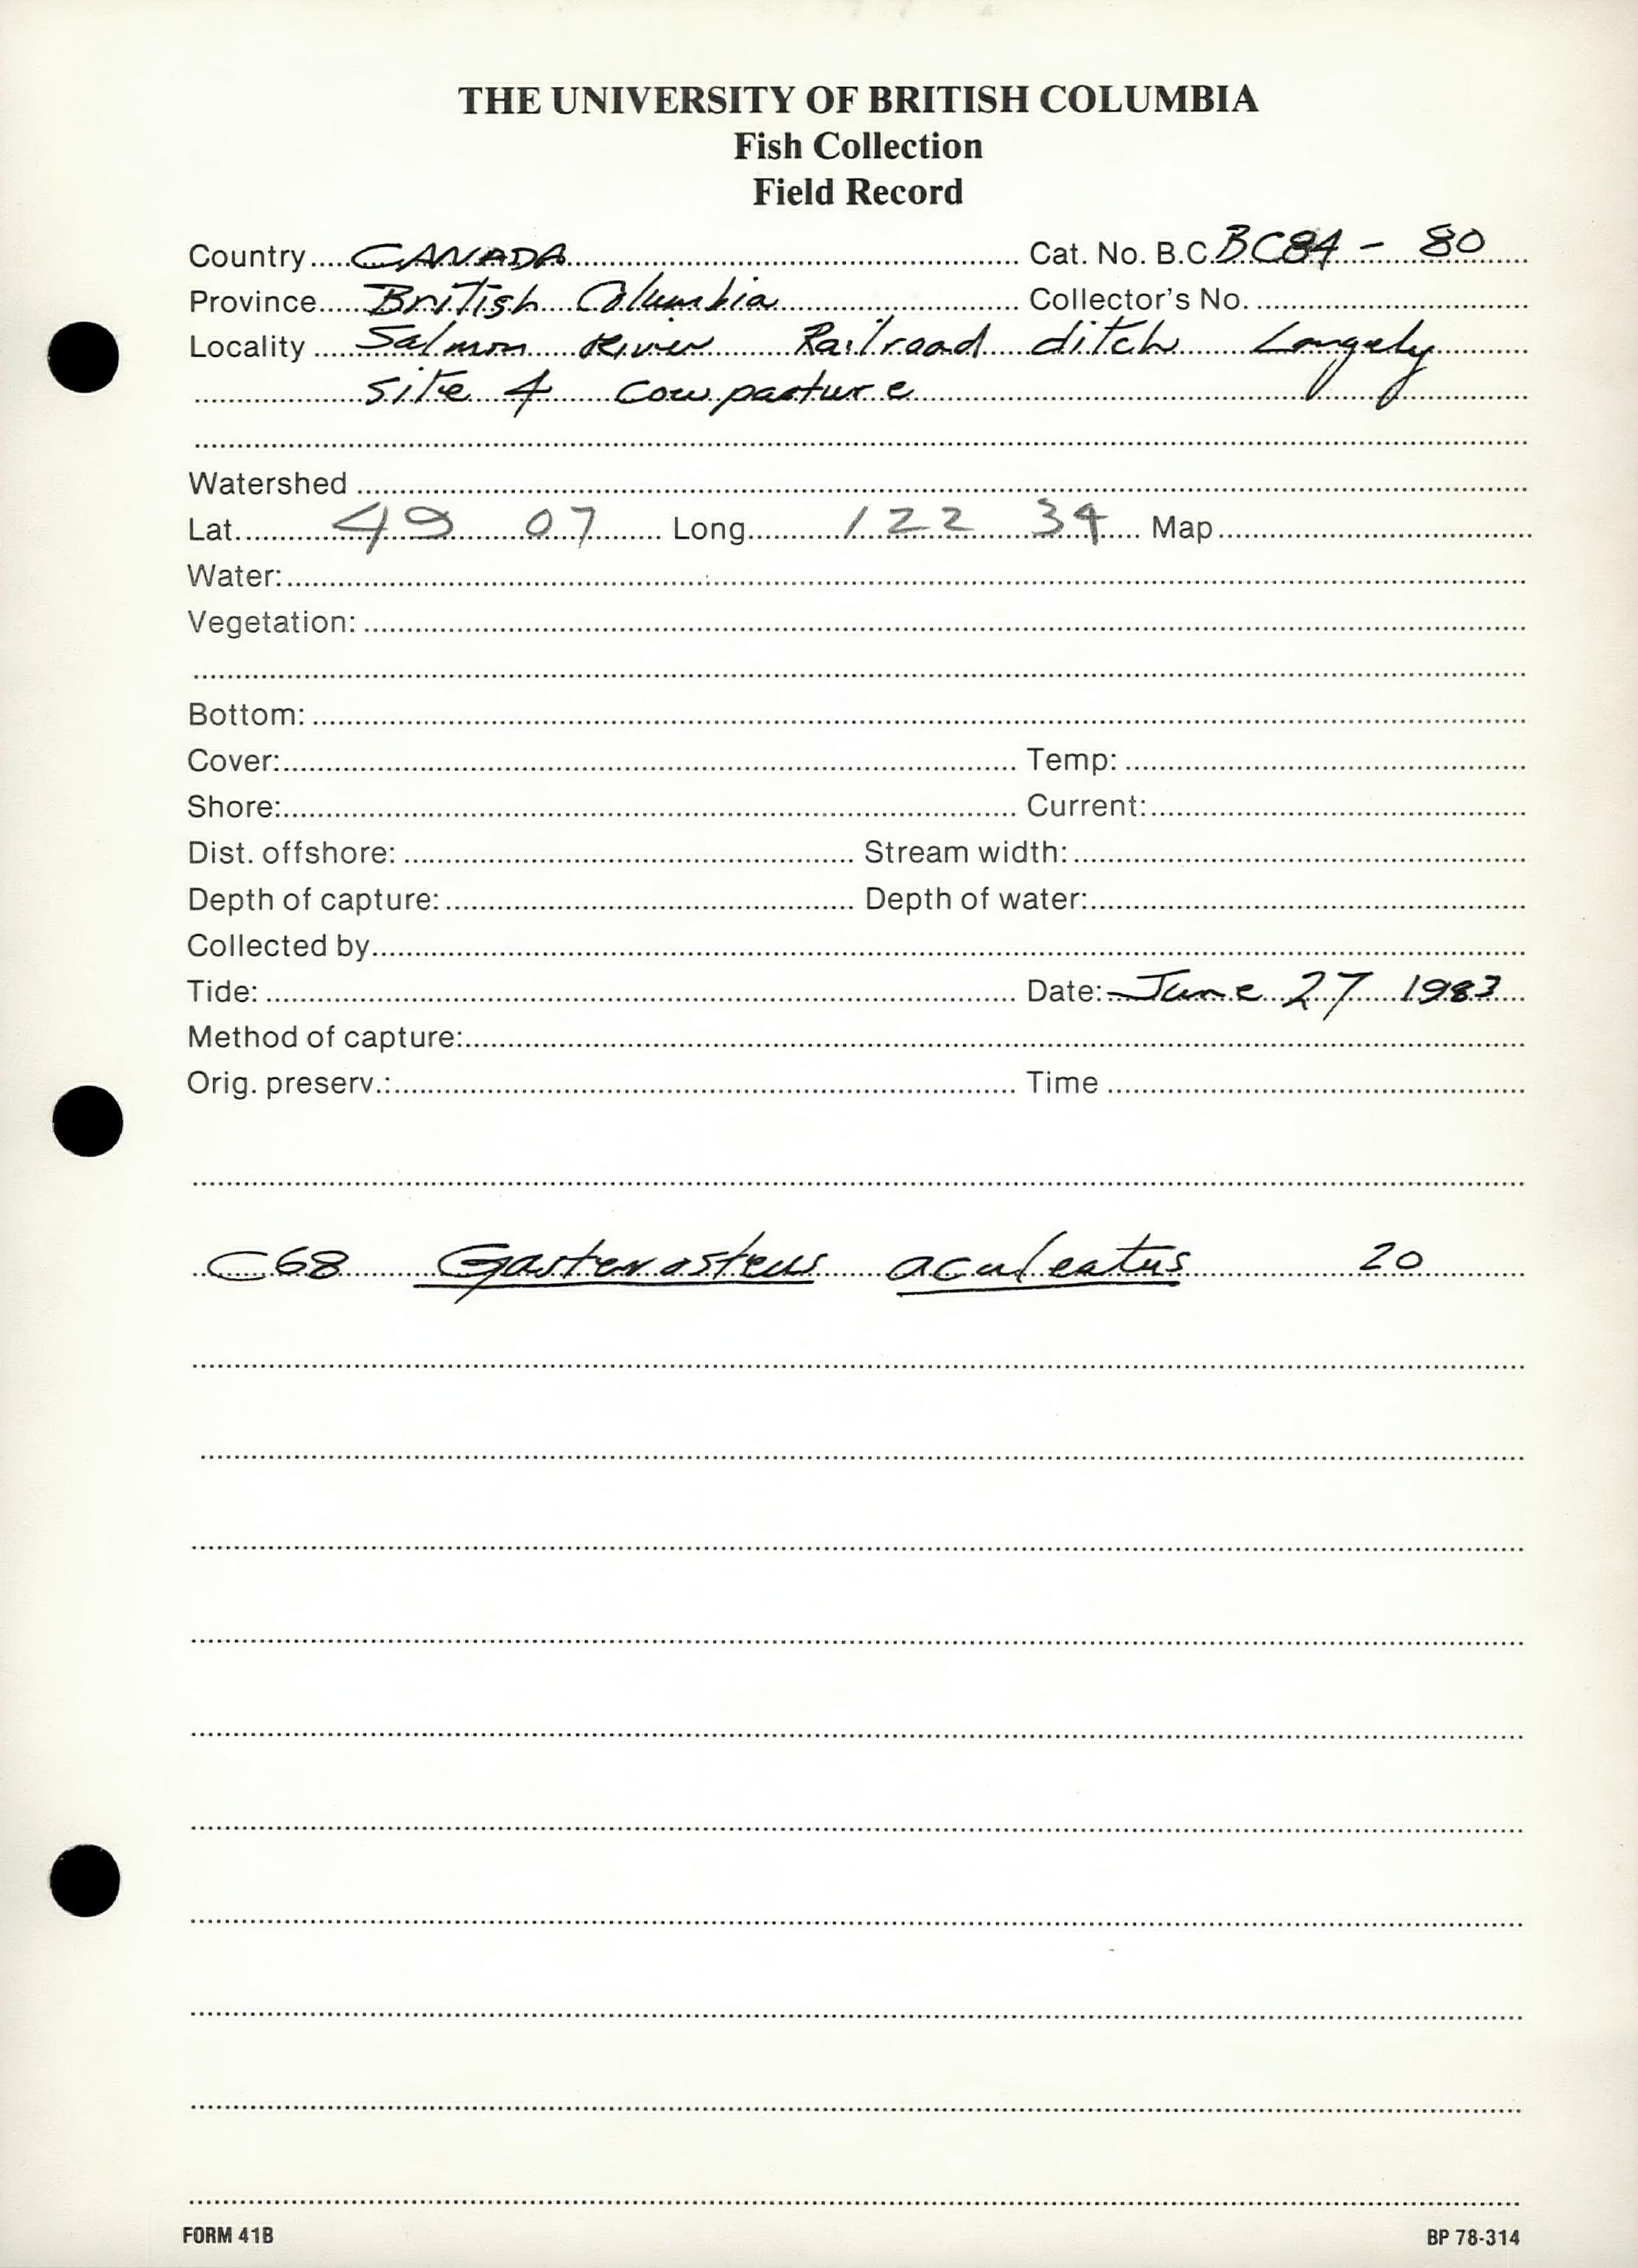 THE UNIVERSITY OF BRITISH COLUMBIA
Fish Collection
Field Record
Country CANADA Cat. No. B.C. BC84 - 80
Province British Columbia Collector's No.
Locality Salmon River Railroad ditch Langely
Site 4 Cow pasture
Watershed
Lat. 49 07 Long. 122 34 Map
Water:
Vegetation:
Bottom:
Cover: Temp:
Shore: Current:
Dist. offshore: Stream width:
Depth of capture: Depth of water:
Collected by
Tide: Date: June 27 1983
Method of capture:
Orig. preserv.: Time
C68 Gasterosteus aculeatus 20
FORM 41B BP 78-314